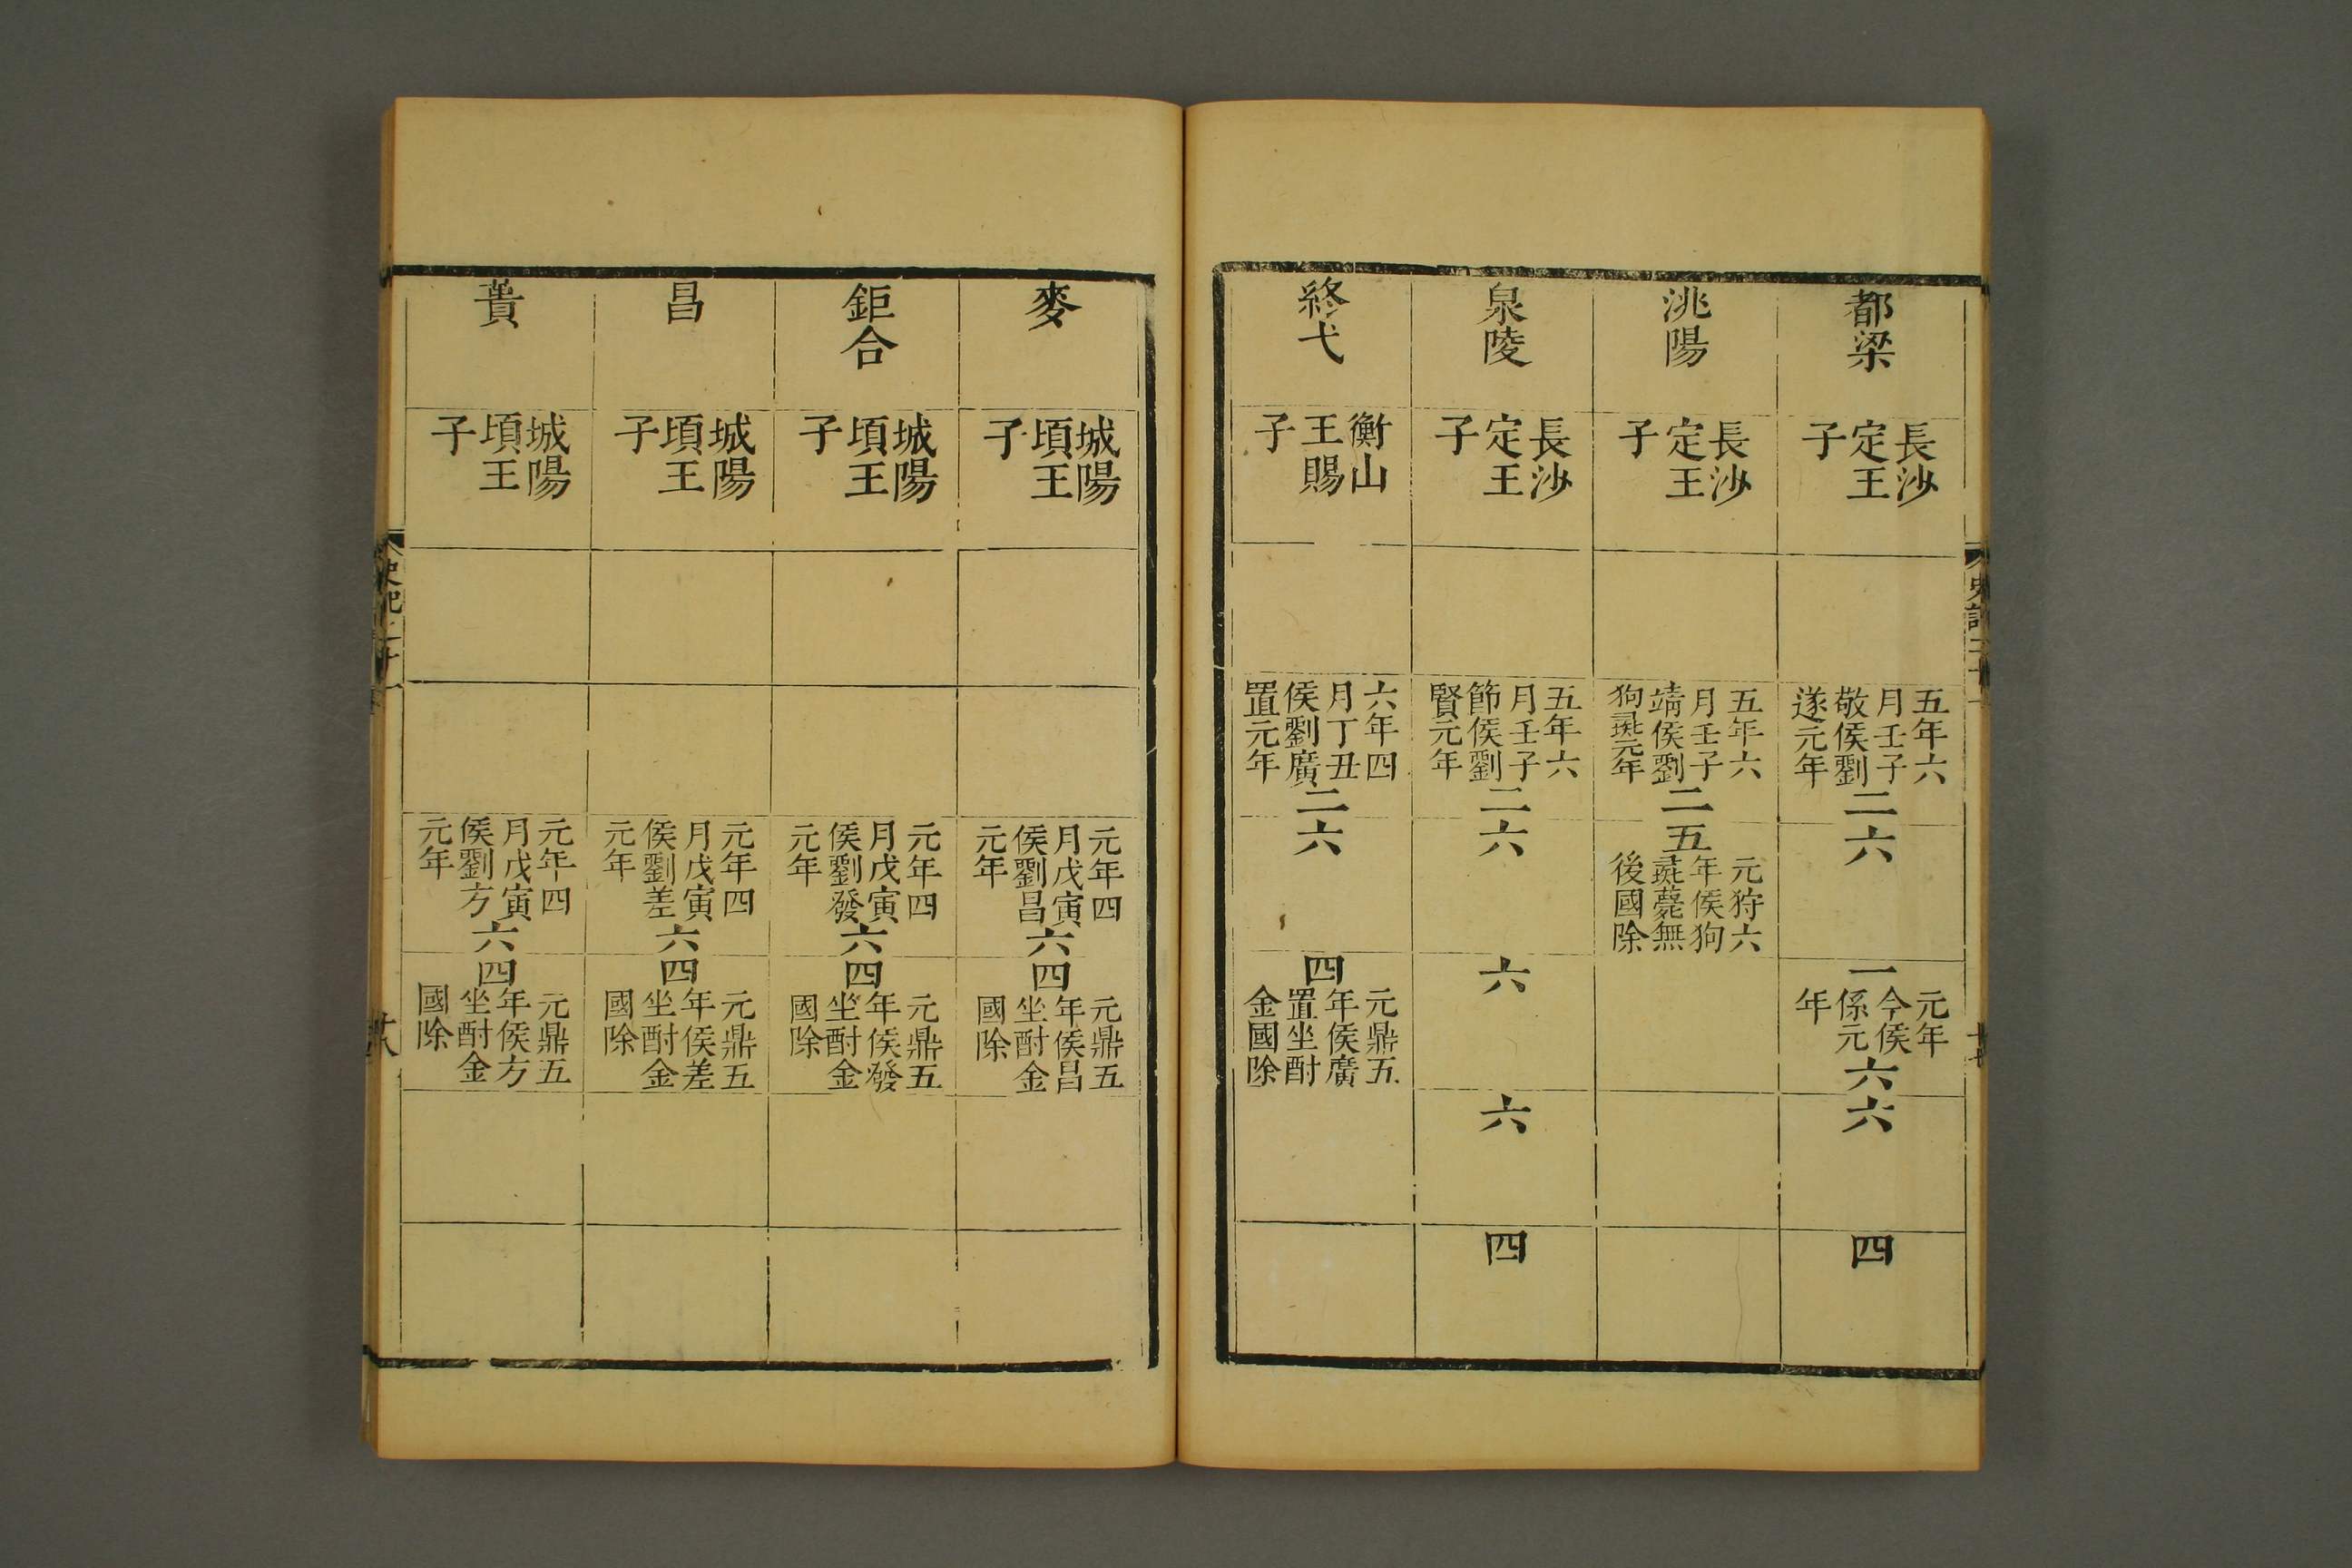 都梁
長沙
定王
子
五年六
月壬子
敬侯劉
遂元年
二
六
一
元年
今侯
係元
年
六
六
四
洮陽
長沙
定王
子
五年六
月壬子
靖侯劉
狗彘元年
二
五
元狩六
年侯狗
彘薨無
後國除
泉陵
長沙
定王
子
五年六
月壬子
節侯劉
賢元年
二
六
六
六
四
終弋
衡山
王賜
子
六年四
月丁丑
侯劉廣
置元年
二
六
四
元鼎五
年侯廣
置坐酎
金國除
麥
城陽
頃王
子
元年四
月戊寅
侯劉昌
元年
六
四
元鼎五
年侯昌
坐酎金
國除
鉅合
城陽
頃王
子
元年四
月戊寅
侯劉發
元年
六
四
元鼎五
年侯發
坐酎金
國除
昌
城陽
頃王
子
元年四
月戊寅
侯劉差
元年
六
四
元鼎五
年侯差
坐酎金
國除
蕢
城陽
頃王
子
元年四
月戊寅
侯劉方
元年
六
四
元鼎五
年侯方
坐酎金
國除